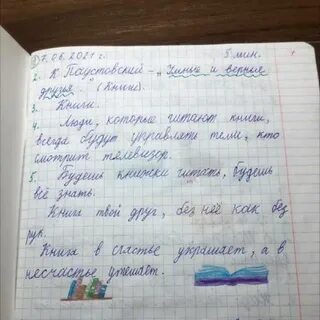 ① 7.06.2021 г. 5 мин.
2. К. Паустовский - „Умные и верные
друзья". (Книги).
3. Книги.
4. Люди, которые читают книги,
всегда будут управлять теми, кто
смотрит телевизор.
5. Будешь книжки читать, будешь
всё знать.
Книга твой друг, без неё как без
рук.
Книга в счастье украшает, а в
несчастье утешает.